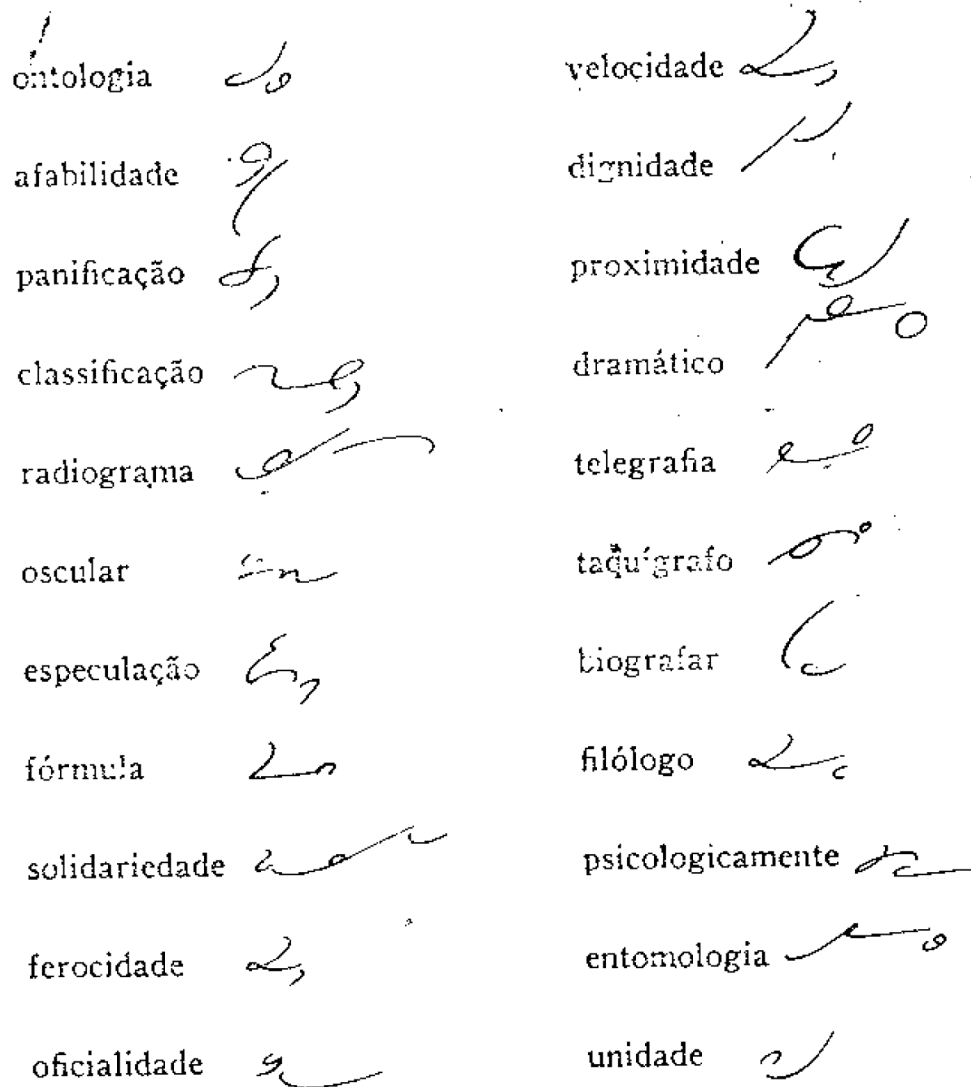 ontologia
afabilidade
panificação
classificação
radiograma
oscular
especulação
fórmula
solidariedade
ferocidade
oficialidade
velocidade
dignidade
proximidade
dramático
telegrafia
taquígrafo
biografar
filólogo
psicologicamente
entomologia
unidade